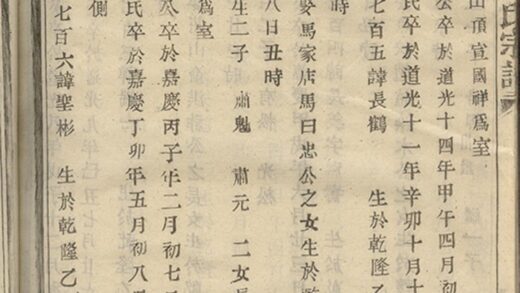 氏宗譜
山頂宣國祥爲室
公卒於道光十四年甲午四月初
氏卒於道光十一年辛卯十月十
七百五諱長鶴 生於乾隆
時
娶馬家店馬曰忠公之女生於
八日丑時
生二子 肅魁 肅元 二女長
爲室
公卒於嘉慶丙子年二月初七
氏卒於嘉慶丁卯年五月初八
側
七百六諱聖彬 生於乾隆乙